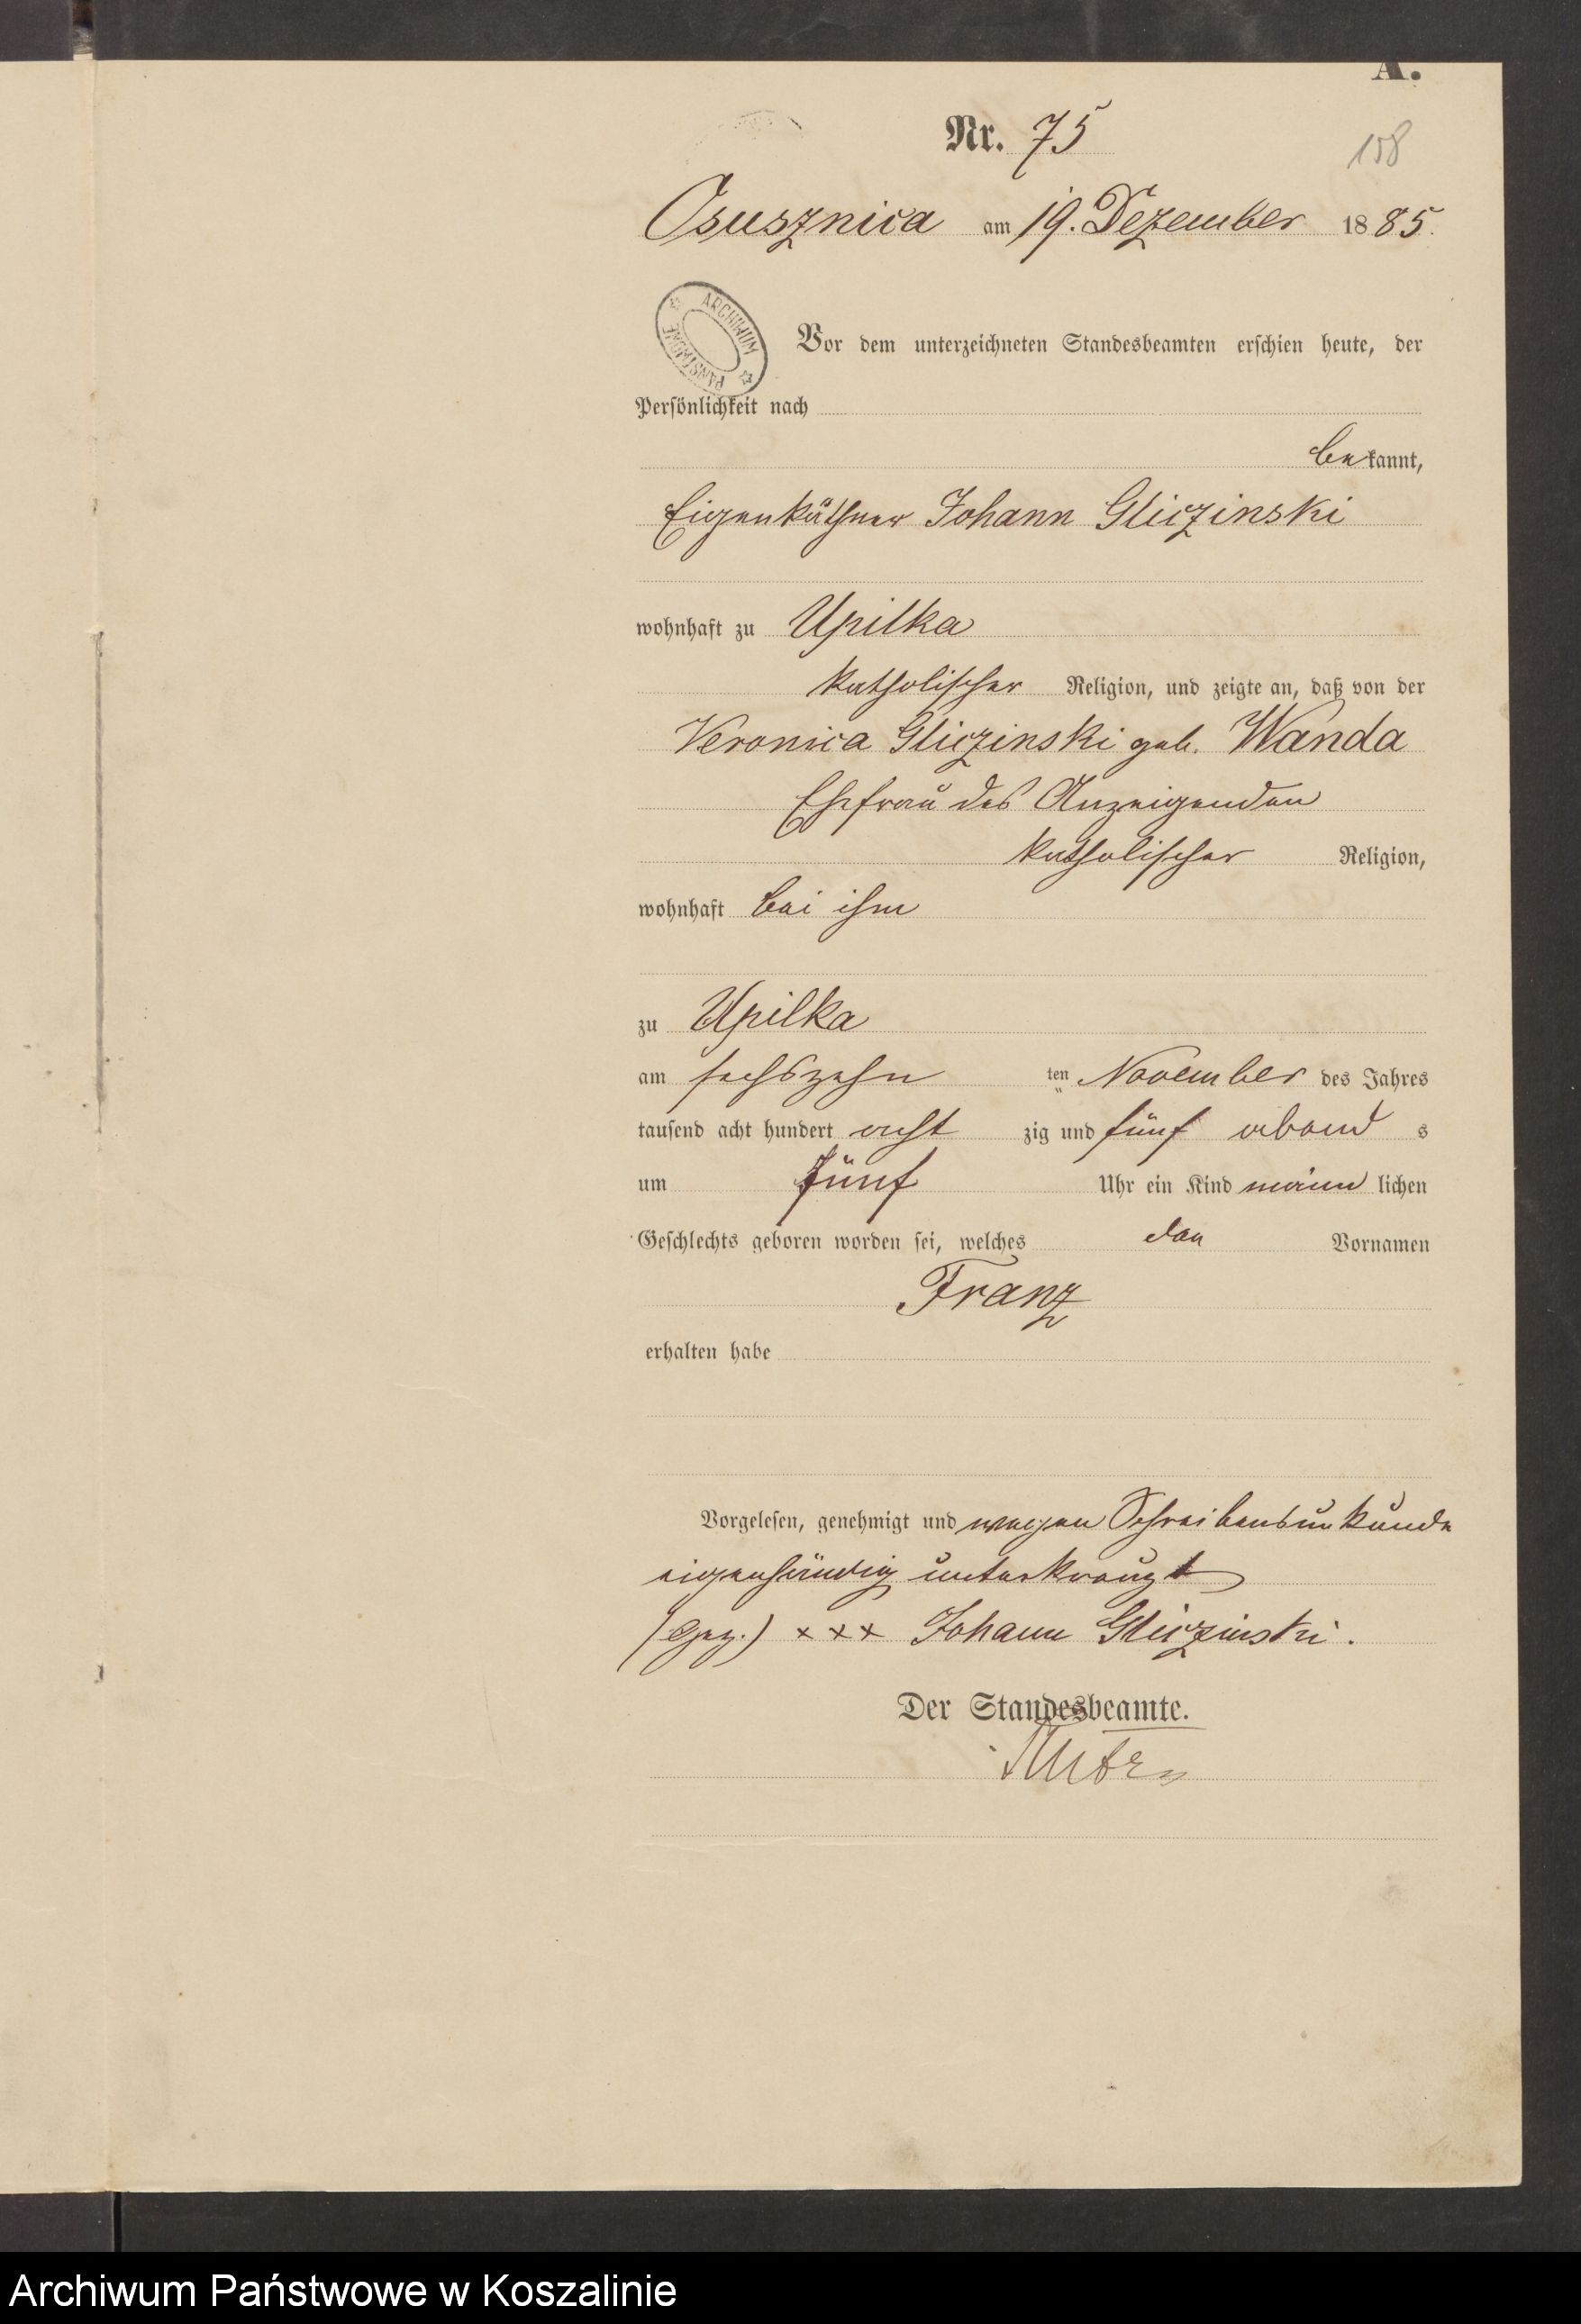 A.
Nr. 75
158
Osusznica am 19. Dezember 1885.
ARCHIWUM PAŃSTWOWE
Vor dem unterzeichneten Standesbeamten erschien heute, der
Persönlichkeit nach
bekannt,
Eigenkäthner Johann Gliczinski
wohnhaft zu Upilka
katholischer Religion, und zeigte an, daß von der
Veronica Gliczinski geb. Wanda
Ehefrau des Anzeigenden
katholischer Religion,
wohnhaft bei ihm
zu Upilka
am sechszehn ten November des Jahres
tausend acht hundert acht zig und fünf abend s
um fünf Uhr ein Kind männ lichen
Geschlechts geboren worden sei, welches den Vornamen
Franz
erhalten habe
Vorgelesen, genehmigt und wegen Schreibensunkunde
eigenhändig unterkreuzt
(gez.) xxx Johann Gliczinski.
Der Standesbeamte.
Archiwum Państwowe w Koszalinie